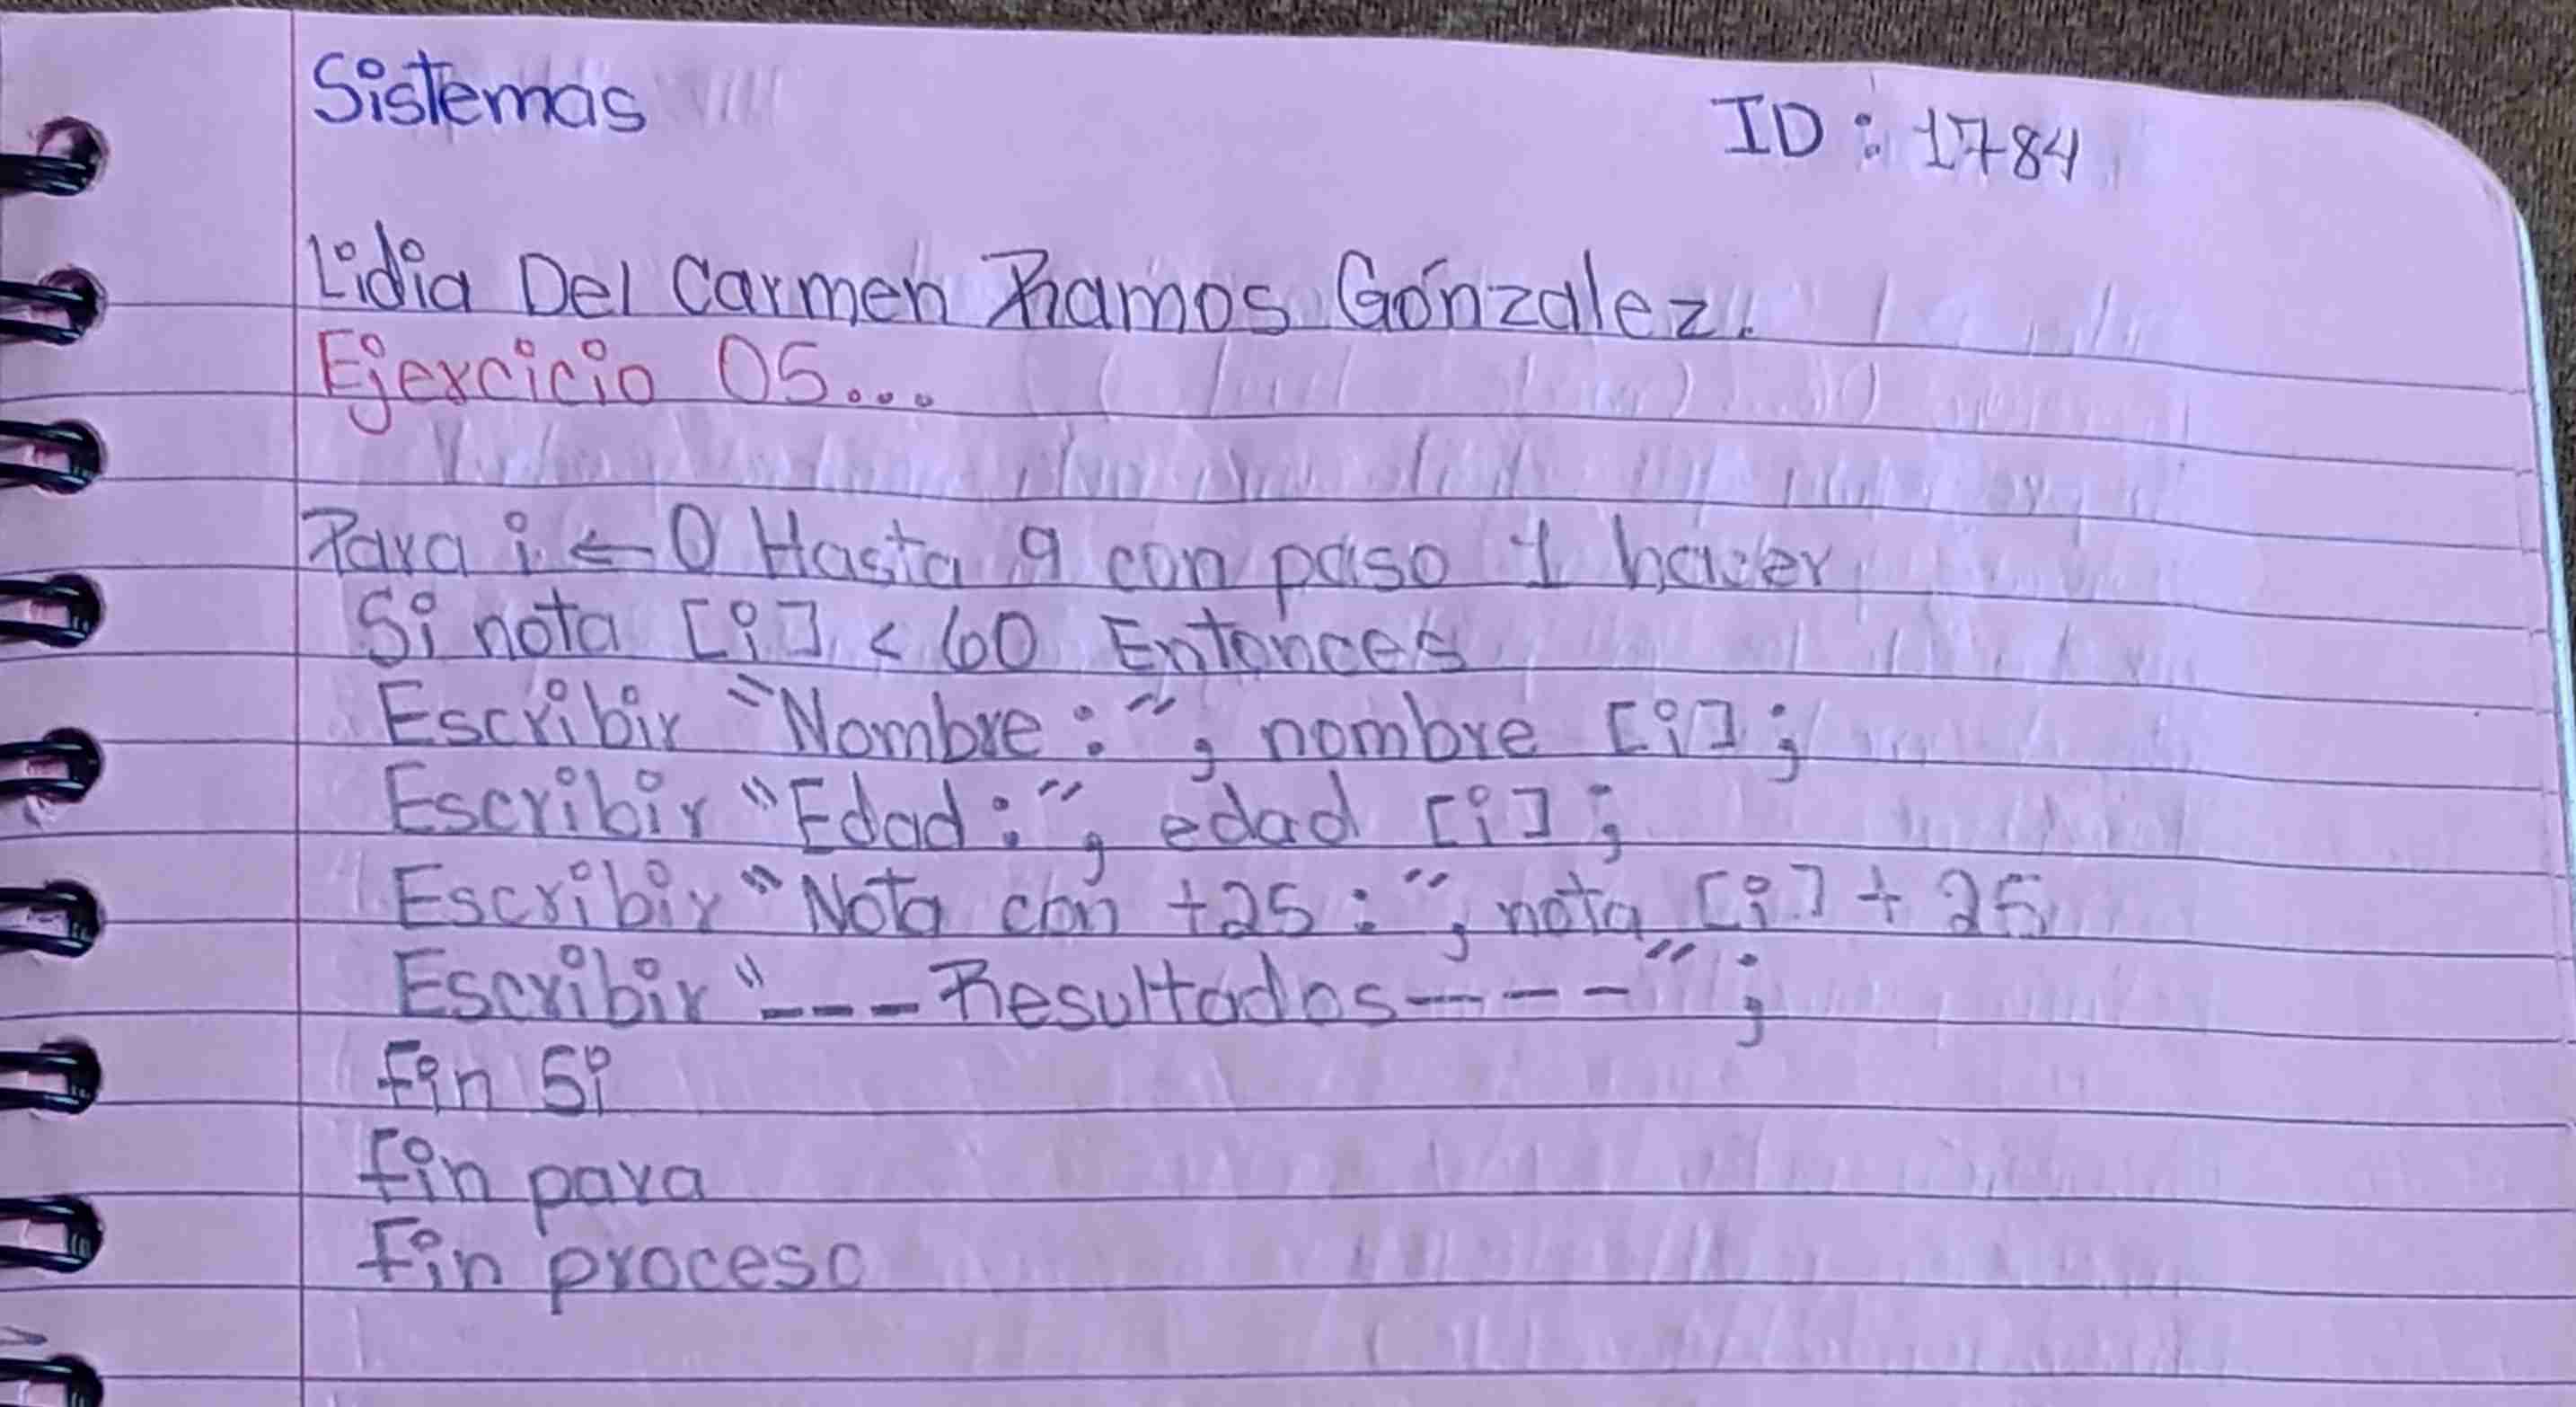 Sistemas
ID: 1784
Lidia Del Carmen Ramos Gónzalez.
Ejercicio 05...
Para i ← 0 Hasta 9 con paso 1 hacer
Si nota [i] < 60 Entonces
Escribir "Nombre:", nombre [i];
Escribir "Edad:", edad [i];
Escribir "Nota con +25:", nota [i] + 25
Escribir "---Resultados----";
Fin Si
fin para
Fin proceso